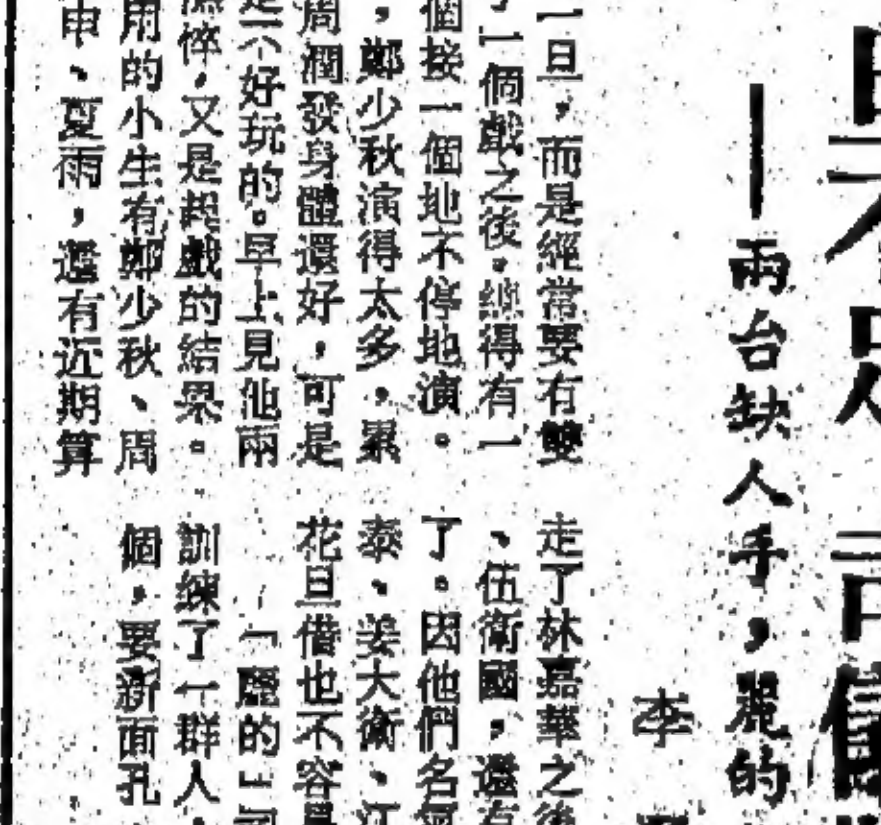 ——兩台缺人手，麗的
李
一旦，而是經常要有雙
一個戲之後，總得有一
個接一個地不停地演。
，鄭少秋演得太多，累
周潤發身體還好，可是
是不好玩的。早上見他兩
憔悴，又是趕戲的結果。
用的小生有鄭少秋、周
申、夏雨，還有近期算
走了林嘉華之後
、伍衛國，還有
了。因他們名氣
泰、姜大衛、江
花旦借也不容易
「麗的
訓練了一群人，
個，要新面孔